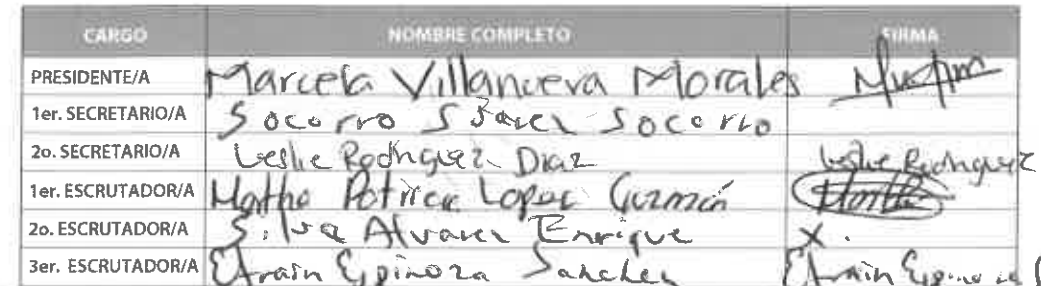 CARGO NOMBRE COMPLETO FIRMA
PRESIDENTE/A Marcela Villanueva Morales
1er. SECRETARIO/A Socorro Socorro
2o. SECRETARIO/A Leslie Rodriguez Diaz Leslie Rodriguez
1er. ESCRUTADOR/A Martha Patricia Lopez Guzmán
2o. ESCRUTADOR/A Silva Alvarez Enrique X.
3er. ESCRUTADOR/A Efrain Espinoza Sanchez Efrain